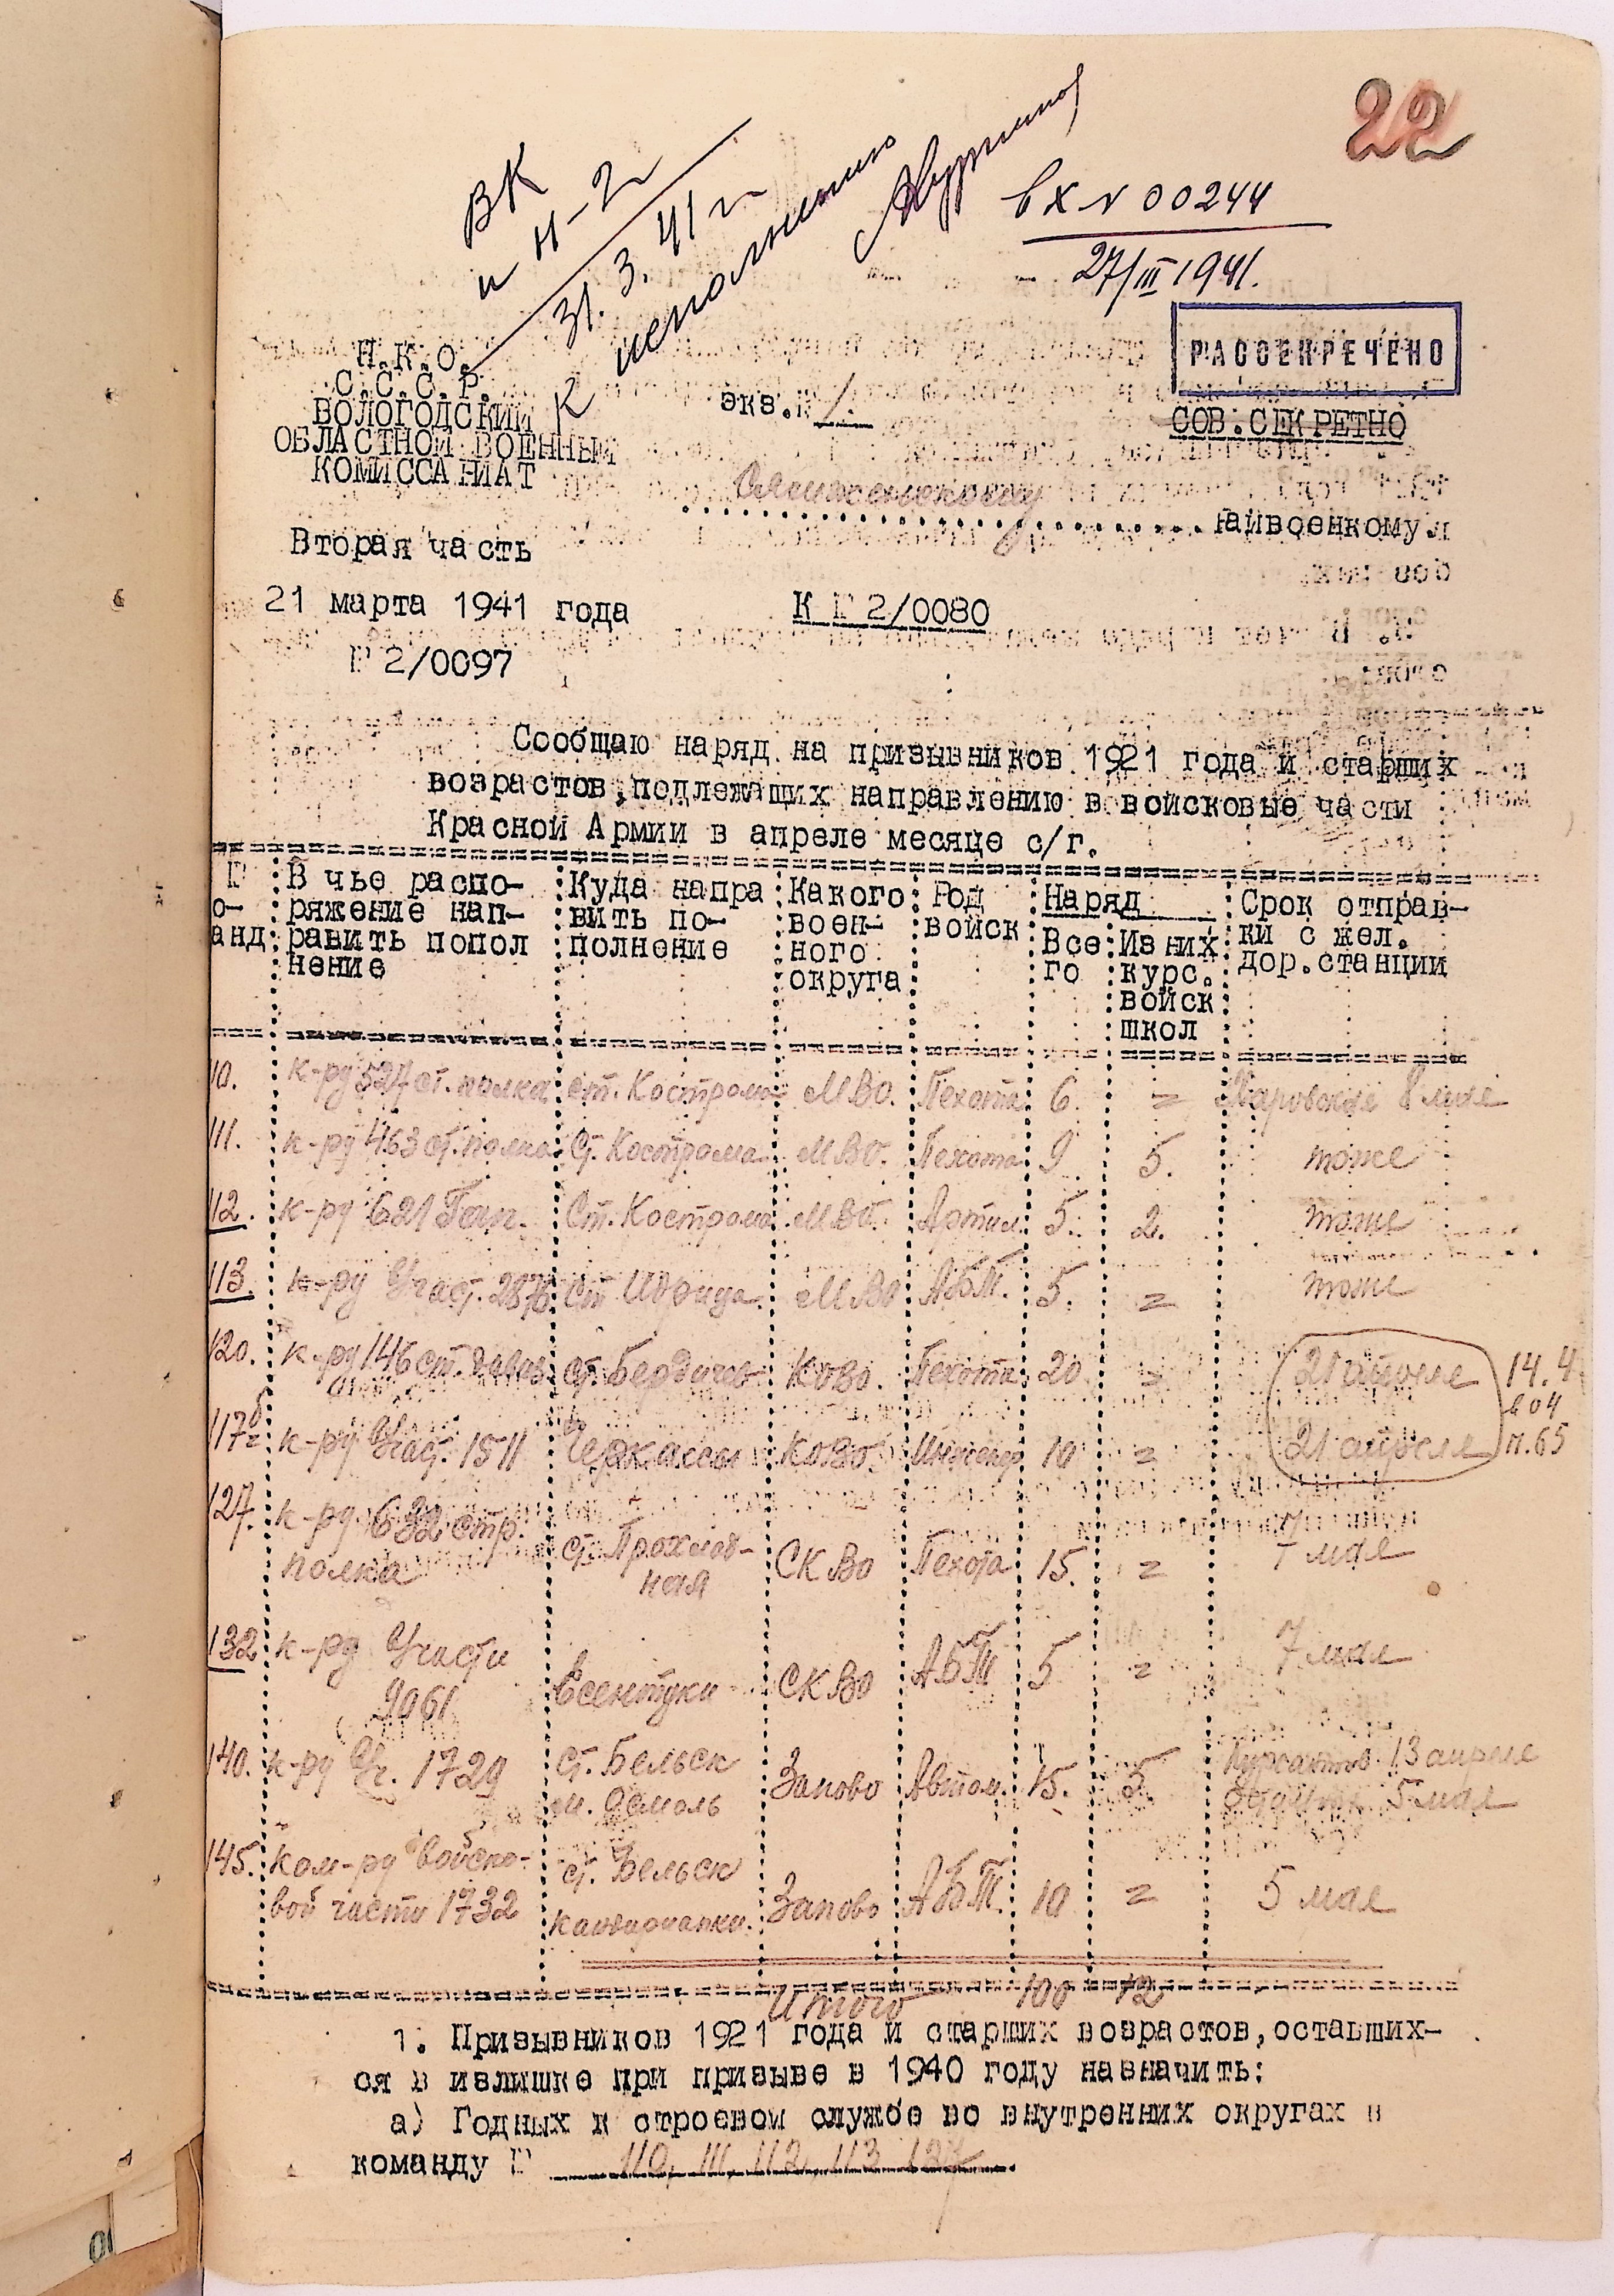 22
ВК
и Н-2
31.3.41 г.
исполнению
вх № 00244
27/III 1941.
РАССЕКРЕЧЕНО
Н.К.О.
С.С.С.Р.
ВОЛОГОДСКИЙ
ОБЛАСТНОЙ ВОЕННЫЙ
КОМИССАРИАТ
экз. № 1.
СОВ.СЕКРЕТНО
райвоенкому
Вторая часть
21 марта 1941 года
К № 2/0080
№ 2/0097
Сообщаю наряд на призывников 1921 года и старших
возрастов, подлежащих направлению в войсковые части
Красной Армии в апреле месяце с/г.
№ В чье распо- Куда напра Какого Род Наряд Срок отправ-
о- ряжение нап- вить по- воен- войск Все Из них ки с жел.
анд равить попол полнение ного го курс. дор.станции
нение округа войск
школ
10. к-ру 527 ст. полка ст. Кострома МВО. Пехота 6. = Харовская 8 мая
111. к-ру 463 ст. полка Ст. Кострома МВО. Пехота 9 5. тоже
112. к-ру 621 Гап. Ст. Кострома МВО. Артил. 5. 2. тоже
113. к-ру В/част. 2876 Ст. Идрица МВО АБТ. 5. = тоже
120. к-ру 146 ст. дивиз. ст. Бердичев КОВО. Пехота 20 = 21 апреля 14.4
в 04
117б к-ру В/част. 1511 Черкассы КОВО. Инженер 10 = 21 апреля п.65
127. к-ру 632 стр. ст. Прохлад- СКВО Пехота 15. = 7 мая
полка ная
132 к-ру В/части Ессентуки СКВО АБТ 5 = 7 мая
9061
140. к-ру В/ч. 1729 ст. Бельск Запово Автом. 15. 5. Курсантов 13 апреля
м. Осмоль 5 мая
145. ком-ру войско- ст. Бельск Запово АБТ. 10 = 5 мая
вой части 1732
Итого 100 12
1. Призывников 1921 года и старших возрастов, оставших-
ся в излишке при призыве в 1940 году назначить:
а) Годных к строевой службе во внутренних округах в
команду № 110, 111, 112, 113 127